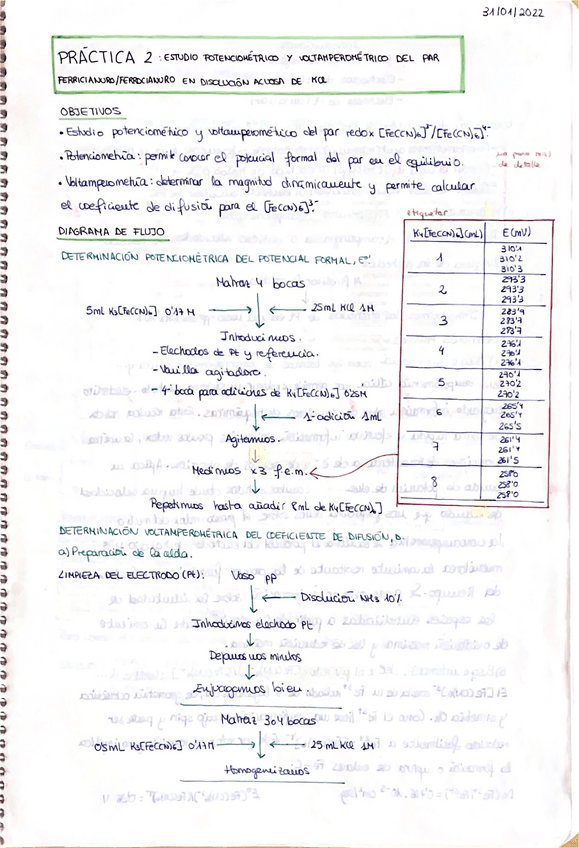 31/01/2022
PRÁCTICA 2: ESTUDIO POTENCIOMÉTRICO Y VOLTAMPEROMÉTRICO DEL PAR
FERRICIANURO/FERROCIANURO EN DISOLUCIÓN ACUOSA DE KCl
OBJETIVOS
• Estudio potenciométrico y voltamperométrico del par redox [Fe(CN)6]3-/[Fe(CN)6]4-.
• Potenciometría: permite conocer el potencial formal del par en el equilibrio.
• Voltamperometría: determinar la magnitud dinámicamente y permite calcular
el coeficiente de difusión para el [Fe(CN)6]3-.
de detalle
DIAGRAMA DE FLUJO
DETERMINACIÓN POTENCIOMÉTRICA DEL POTENCIAL FORMAL, E°'
Matraz 4 bocas
5mL K3[Fe(CN)6] 0'17M
25mL KCl 1M
Introducimos.
- Electrodos de Pt y referencia.
- Varilla agitadora.
- 4ª boca para adiciones de K4[Fe(CN)6] 0'25M
1ª adición 1mL
Agitamos.
Medimos x3 f.e.m.
Repetimos hasta añadir 8mL de K4[Fe(CN)6]
etiquetar
K4[Fe(CN)6] (mL) E (mV)
1 310'1
310'2
310'3
2 293'3
293'3
293'3
3 283'7
283'7
283'7
4 276'1
276'1
276'1
5 270'1
270'2
270'2
6 265'4
265'4
265'5
7 261'4
261'4
261'5
8 258'0
258'0
258'0
DETERMINACIÓN VOLTAMPEROMÉTRICA DEL COEFICIENTE DE DIFUSIÓN, D.
a) Preparación de la celda.
LIMPIEZA DEL ELECTRODO (Pt): Vaso pp
Disolución NH3 10%
Introducimos electrodo Pt
Dejamos unos minutos
Enjuagamos bien
Matraz 3 o 4 bocas
0'5mL K3[Fe(CN)6] 0'17M
25 mL KCl 1M
Homogeneizamos